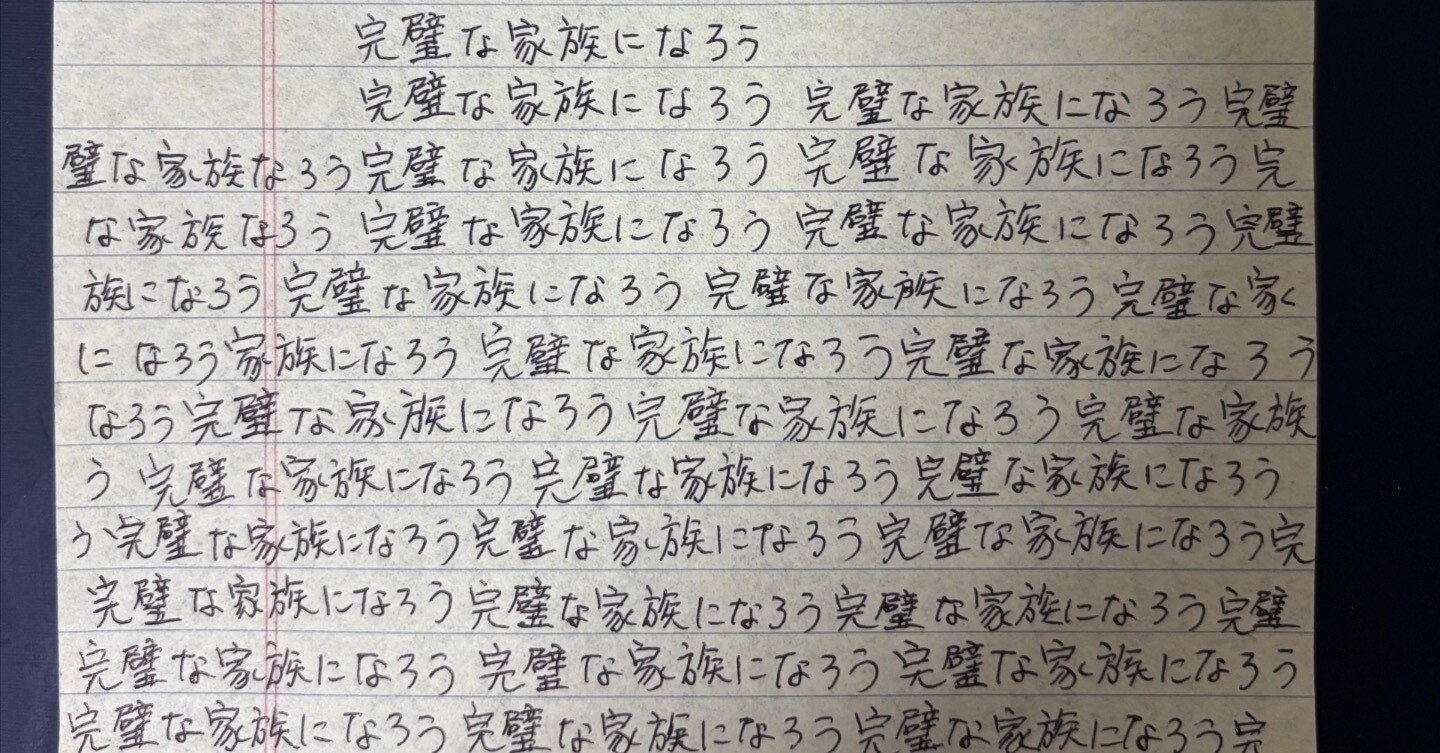 完璧な家族になろう
完璧な家族になろう 完璧な家族になろう完璧
璧な家族なろう完璧な家族になろう 完璧な家族になろう完
な家族なろう 完璧な家族になろう 完璧な家族になろう完璧
族になろう完璧な家族になろう完璧な家族になろう完璧な家
になろう家族になろう完璧な家族になろう完璧な家族になろう
なろう完璧な家族になろう完璧な家族になろう完璧な家族
う 完璧な家族になろう完璧な家族になろう完璧な家族になろう
う完璧な家族になろう完璧な家族になろう完璧な家族になろう完
完璧な家族になろう完璧な家族になろう完璧な家族になろう完璧
完璧な家族になろう 完璧な家族になろう完璧な家族になろう
完璧な家族になろう完璧な家族になろう完璧な家族になろう完